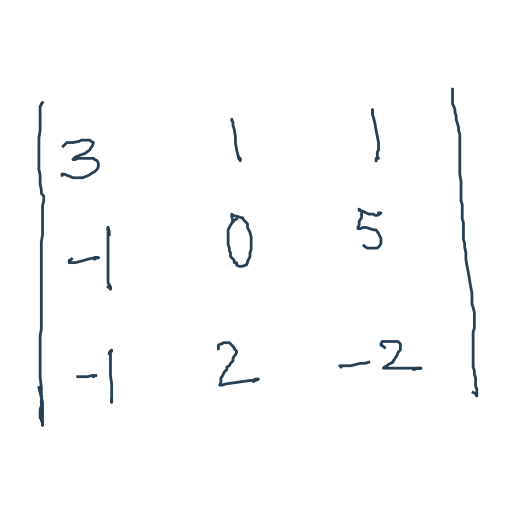 | 3 1 1 |
| -1 0 5 |
| -1 2 -2 |